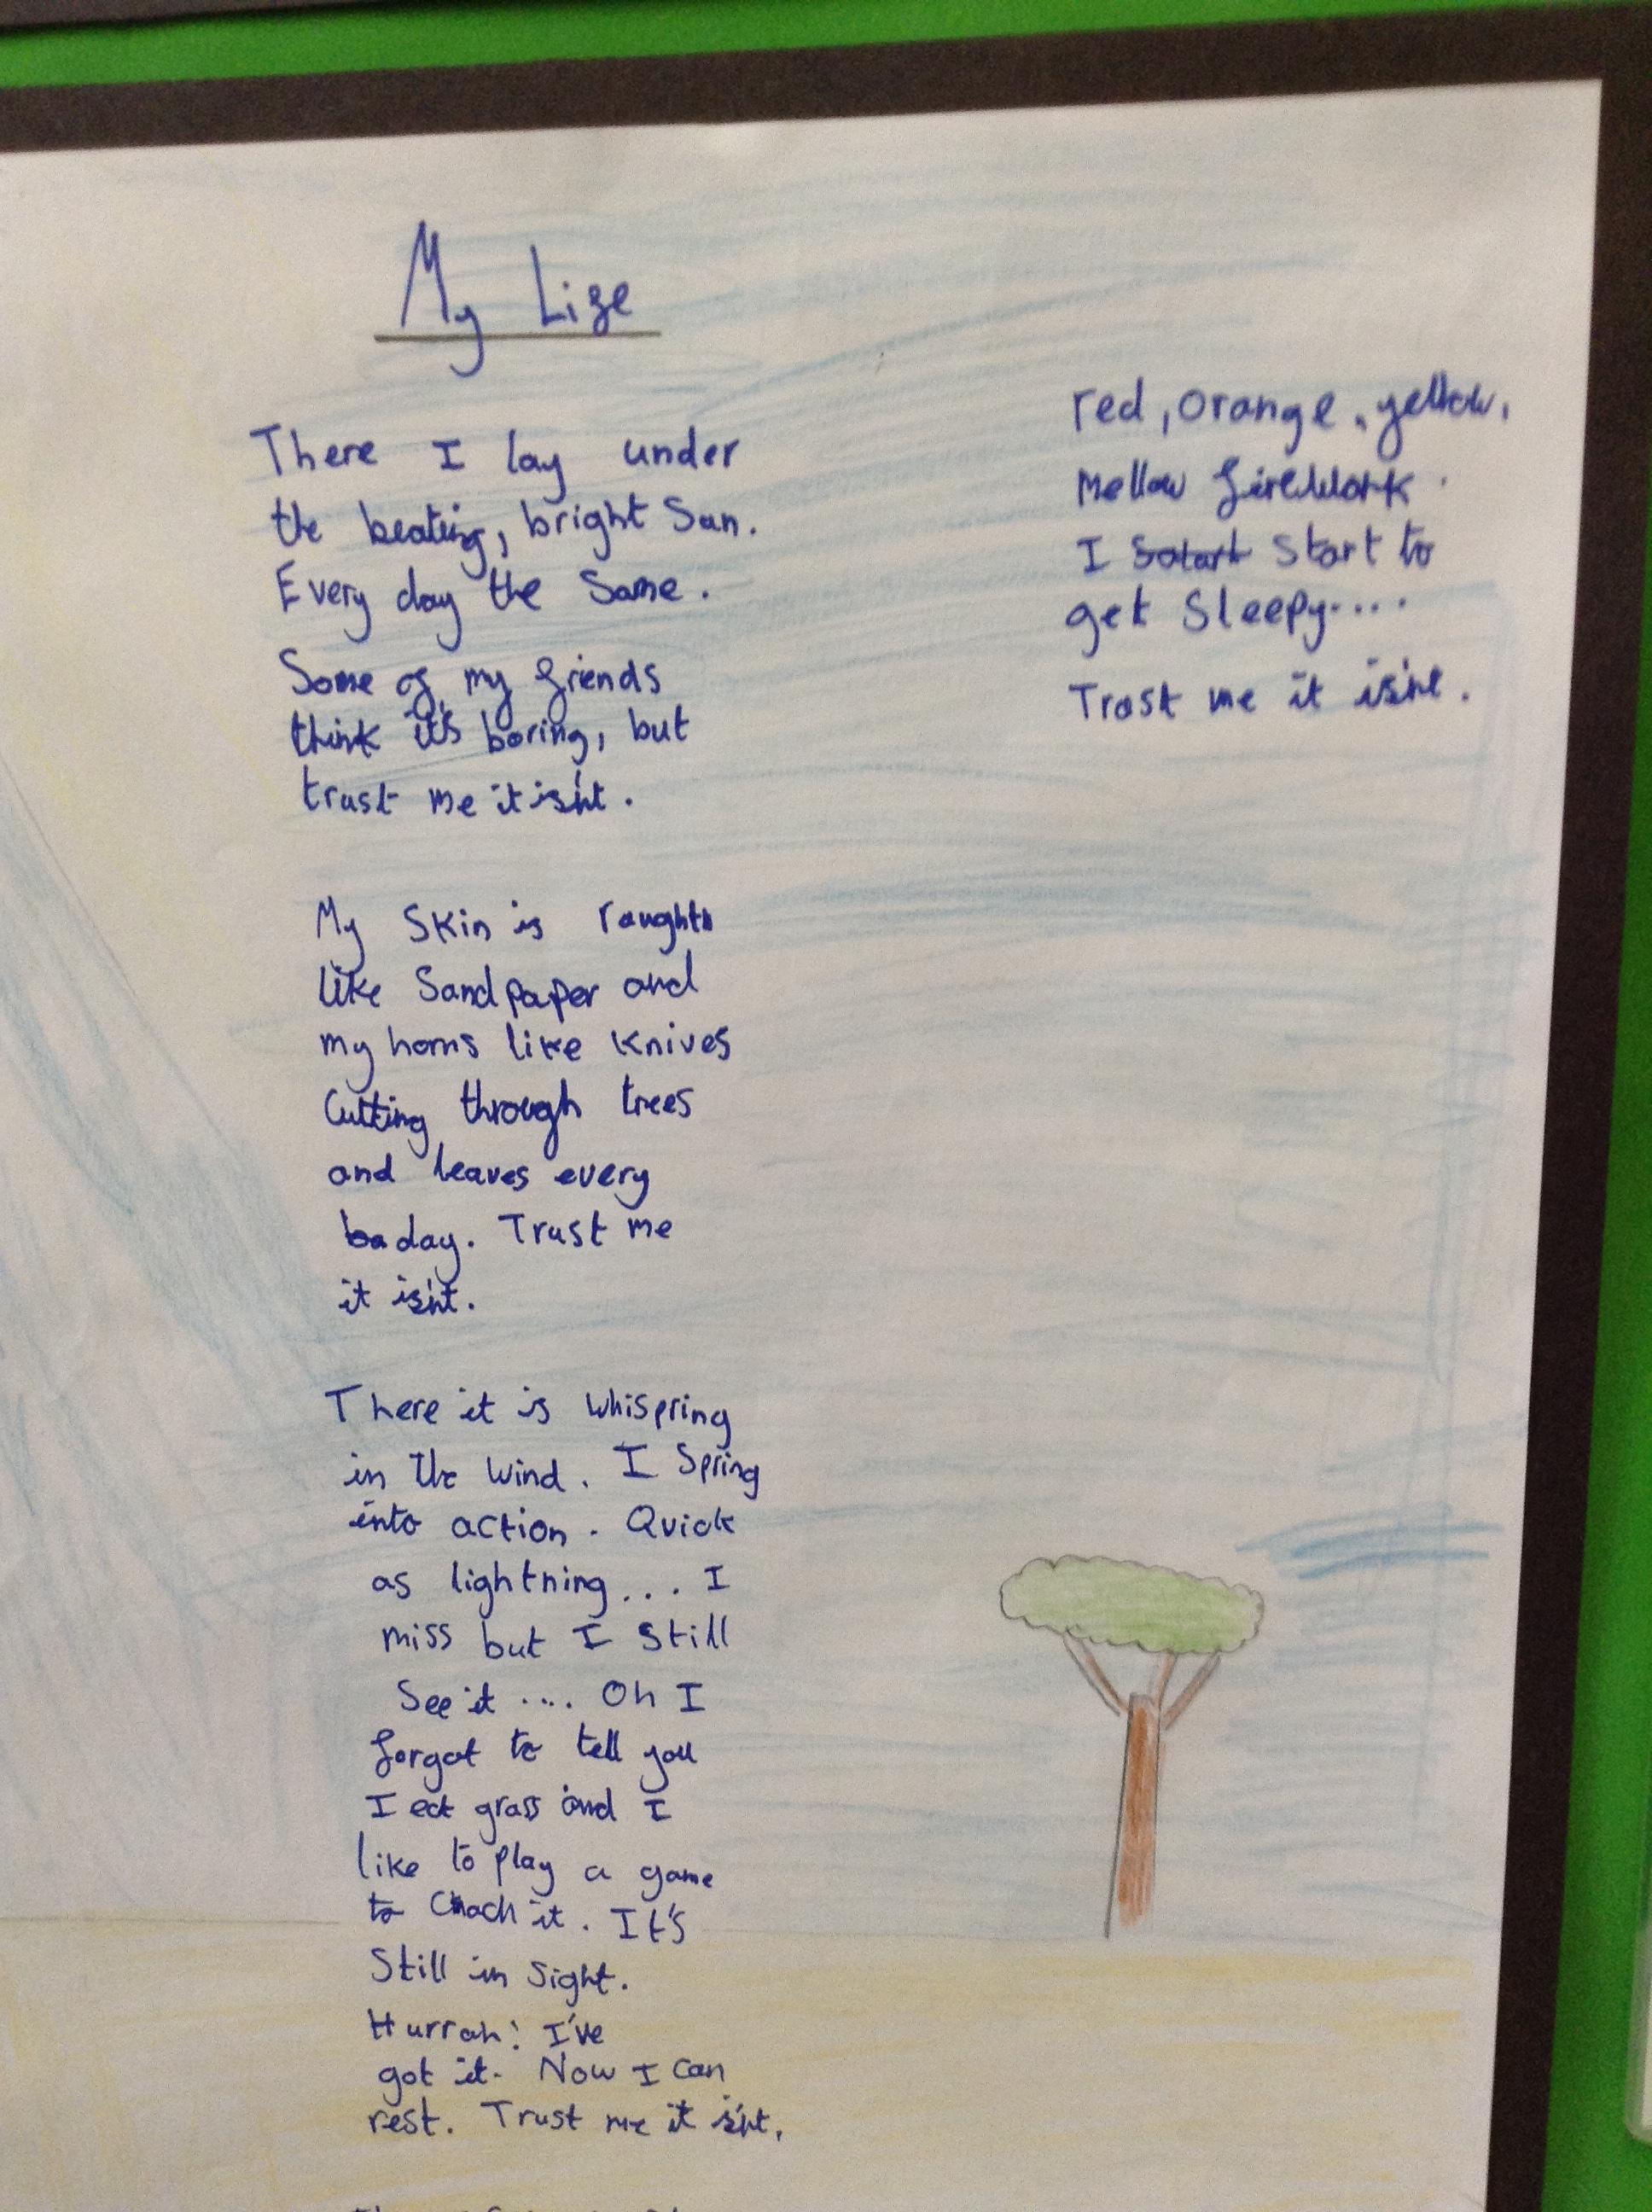 My Life
There I lay under
the beating, bright Sun.
Every day the Same.
Some of my friends
think it's boring, but
trust me it is'nt.
My Skin is
like Sandpaper and
my horns like Knives
Cutting through trees
and leaves every
day. Trust me
it is'nt.
There it is Whispring
in the Wind. I Spring
into action. Quick
as lightning... I
miss but I Still
See it .... Oh I
forgot to tell you
I eat grass and I
like to play a game
to Chach it. It's
Still in Sight.
Hurrah! I've
got it. Now I can
rest. Trust me it is'nt.
red, orange, yellow,
Mellow firework.
I start to
get Sleepy....
Trast me it is'nt.